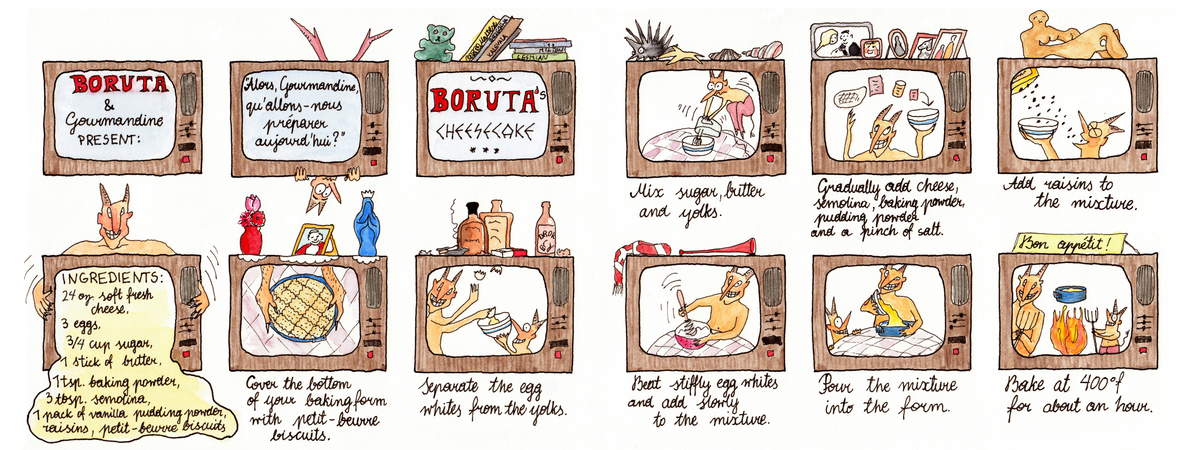 BORUTA
&
Gourmandine
PRESENT:
"Alors, Gourmandine,
qu'allons-nous
préparer
aujourd'hui?"
LESMIAN
BORUTA's
CHEESECAKE
INGREDIENTS:
24 oz. soft fresh
cheese,
3 eggs,
3/4 cup sugar,
1 stick of butter,
1 tsp. baking powder,
3 tbsp. semolina,
1 pack of vanilla pudding powder,
raisins, petit-beurre biscuits
Cover the bottom
of your baking form
with petit-beurre
biscuits.
Separate the egg
whites from the yolks.
Mix sugar, butter
and yolks.
Gradually add cheese,
semolina, baking powder,
pudding powder
and a pinch of salt.
Add raisins to
the mixture.
Beat stiffly egg whites
and add slowly
to the mixture.
Pour the mixture
into the form.
Bon appétit!
Bake at 400°f
for about an hour.